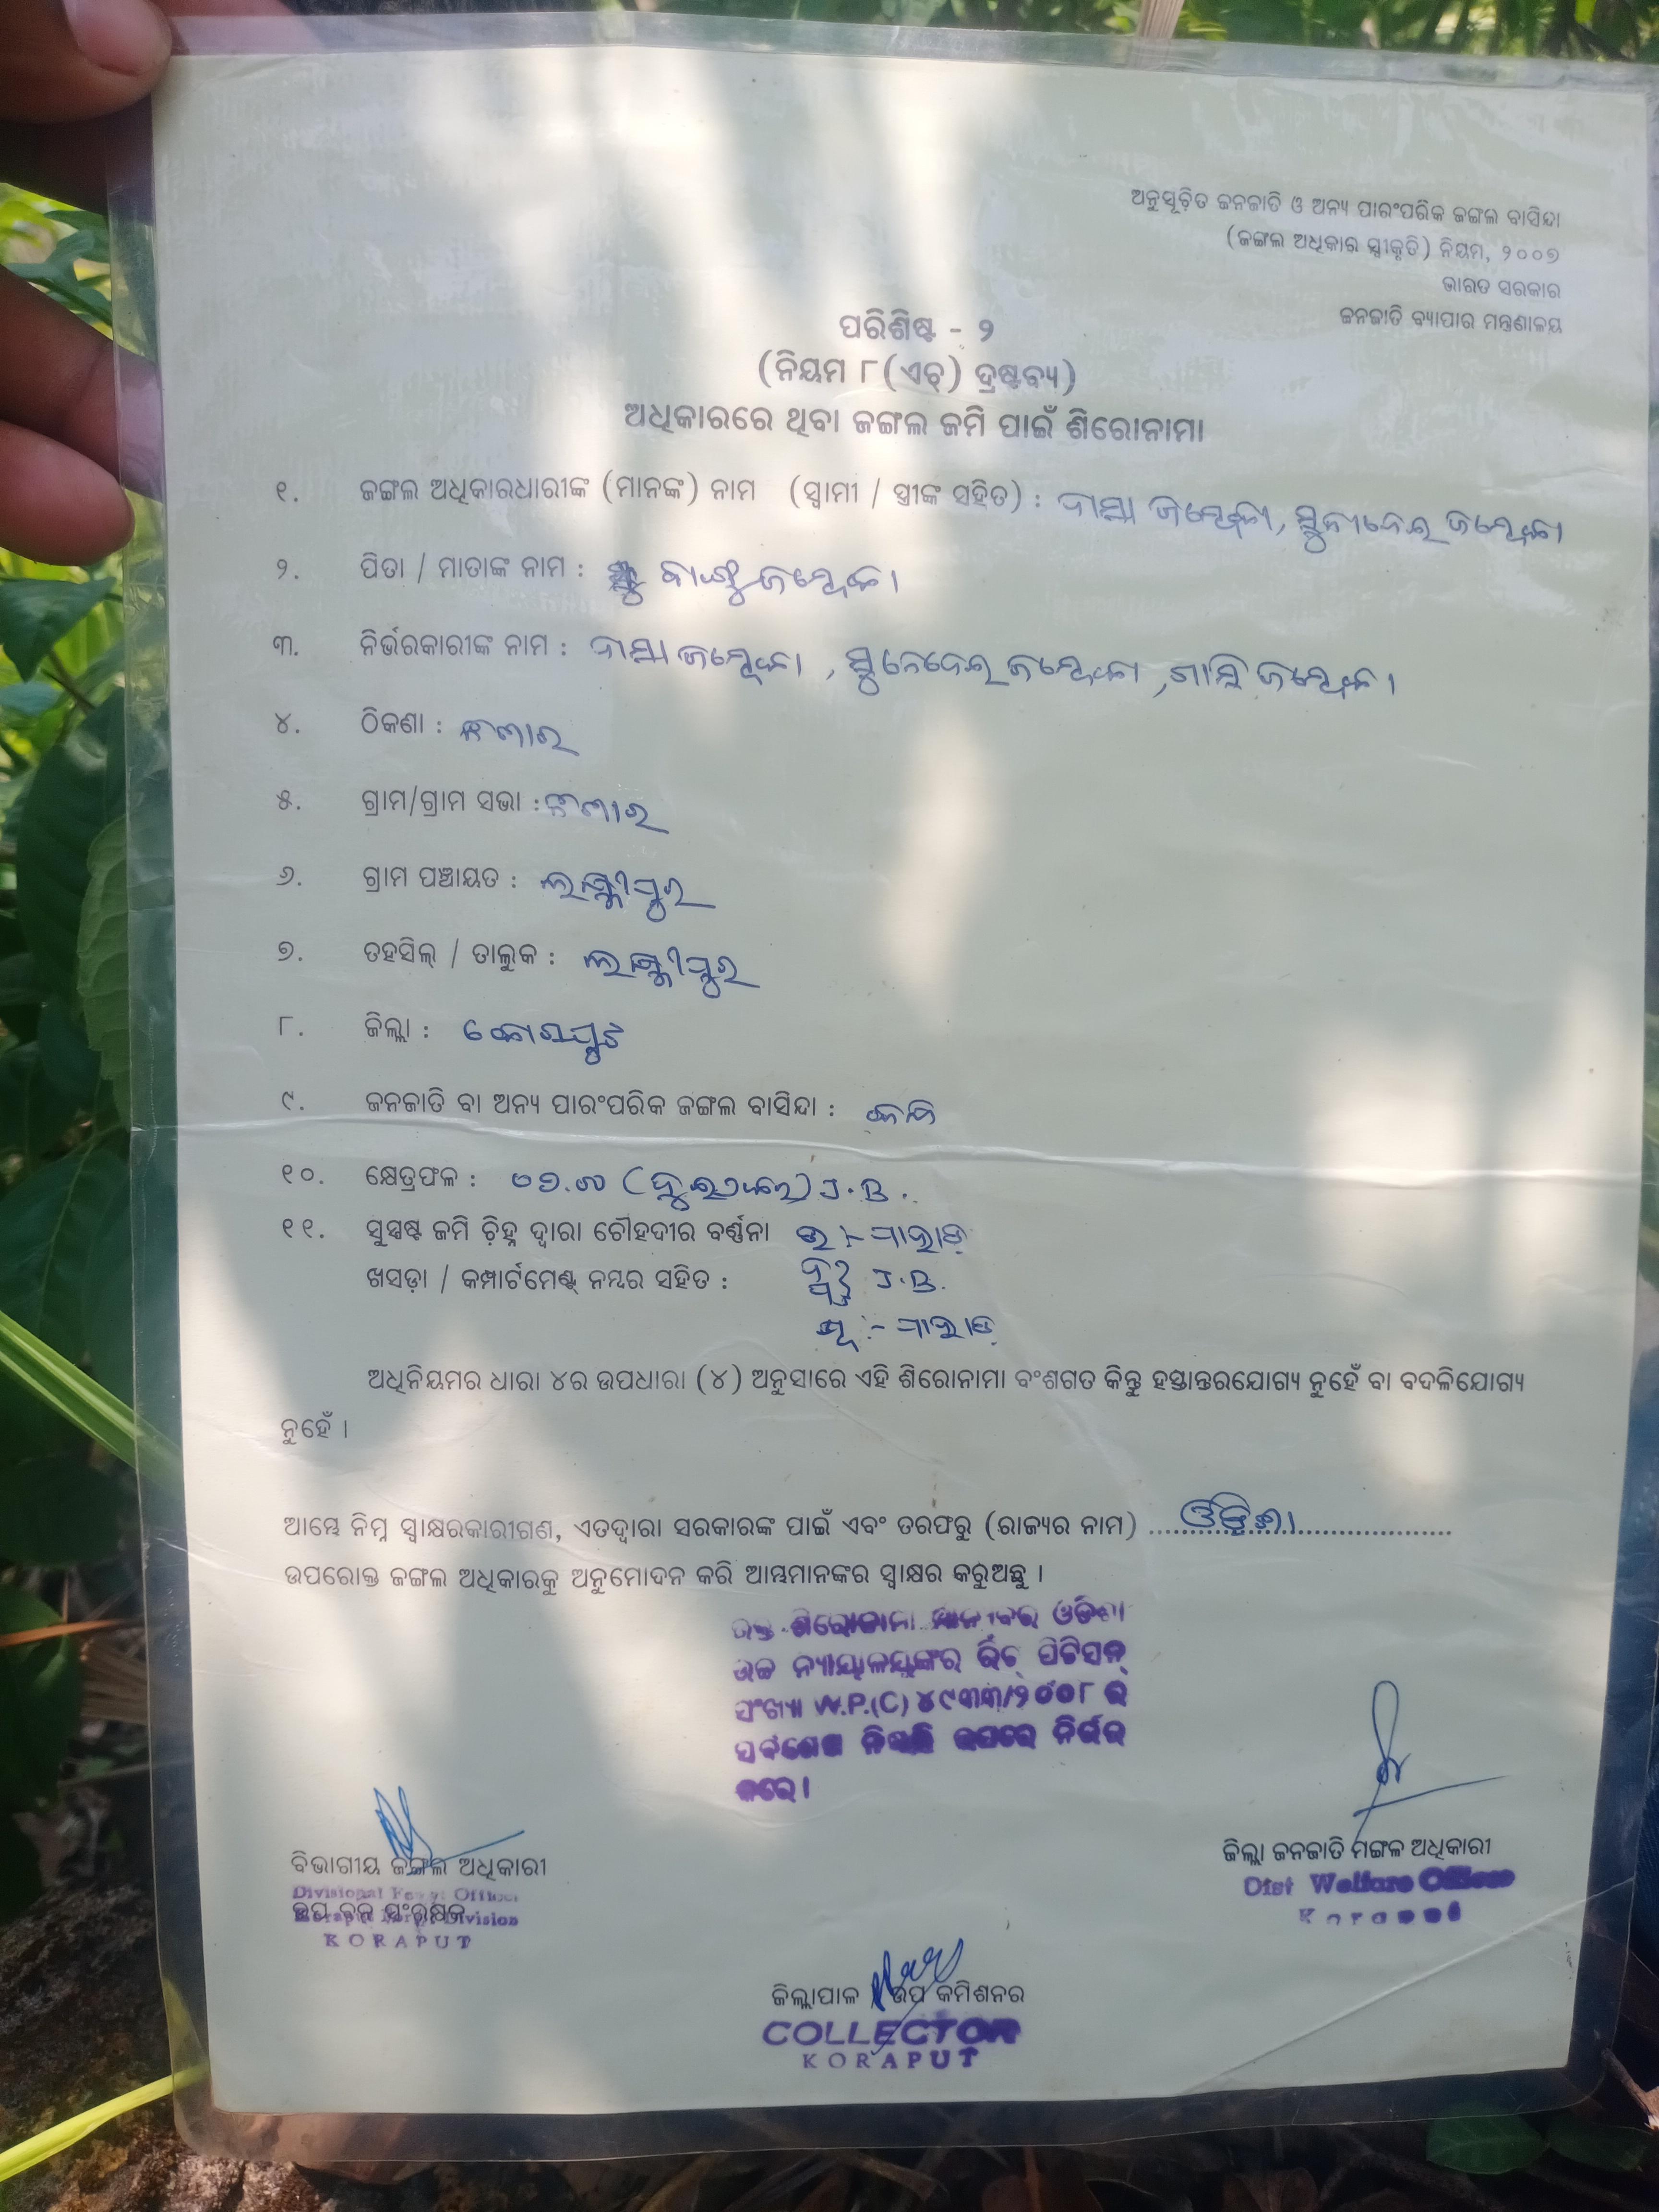 ଅନୁସୂଚିତ ଜନଜାତି ଓ ଅନ୍ୟ ପାରଂପରିକ ଜଙ୍ଗଲ ବାସିନ୍ଦା
(ଜଙ୍ଗଲ ଅଧିକାର ସ୍ୱୀକୃତି) ନିୟମ, ୨୦୦୭
ଭାରତ ସରକାର
ଜନଜାତି ବ୍ୟାପାର ମନ୍ତ୍ରଣାଳୟ
ପରିଶିଷ୍ଟ - ୨
(ନିୟମ ୮(ଏଚ୍) ଦ୍ରଷ୍ଟବ୍ୟ)
ଅଧିକାରରେ ଥିବା ଜଙ୍ଗଲ ଜମି ପାଇଁ ଶିରୋନାମା
୧. ଜଙ୍ଗଲ ଅଧିକାରଧାରୀଙ୍କ (ମାନଙ୍କ) ନାମ (ସ୍ୱାମୀ / ସ୍ତ୍ରୀଙ୍କ ସହିତ) :
୨. ପିତା / ମାତାଙ୍କ ନାମ :
୩. ନିର୍ଭରକାରୀଙ୍କ ନାମ :
୪. ଠିକଣା :
୫. ଗ୍ରାମ/ଗ୍ରାମ ସଭା :
୬. ଗ୍ରାମ ପଞ୍ଚାୟତ : ଲକ୍ଷ୍ମୀପୁର
୭. ତହସିଲ୍ / ତାଲୁକ : ଲକ୍ଷ୍ମୀପୁର
୮. ଜିଲ୍ଲା : କୋରାପୁଟ
୯. ଜନଜାତି ବା ଅନ୍ୟ ପାରଂପରିକ ଜଙ୍ଗଲ ବାସିନ୍ଦା :
୧୦. କ୍ଷେତ୍ରଫଳ : J.B.
୧୧. ସୁସ୍ପଷ୍ଟ ଜମି ଚିହ୍ନ ଦ୍ୱାରା ଚୌହଦୀର ବର୍ଣ୍ଣନା ଉ :- ପାହାଡ଼
ଖସଡ଼ା / କମ୍ପାର୍ଟମେଣ୍ଟ୍ ନମ୍ବର ସହିତ : J.B.
ପୂ :- ପାହାଡ଼
ଅଧିନିୟମର ଧାରା ୪ର ଉପଧାରା (୪) ଅନୁସାରେ ଏହି ଶିରୋନାମା ବଂଶଗତ କିନ୍ତୁ ହସ୍ତାନ୍ତରଯୋଗ୍ୟ ନୁହେଁ ବା ବଦଳିଯୋଗ୍ୟ
ନୁହେଁ ।
ଆମ୍ଭେ ନିମ୍ନ ସ୍ୱାକ୍ଷରକାରୀଗଣ, ଏତଦ୍ୱାରା ସରକାରଙ୍କ ପାଇଁ ଏବଂ ତରଫରୁ (ରାଜ୍ୟର ନାମ) ଓଡ଼ିଶା
ଉପରୋକ୍ତ ଜଙ୍ଗଲ ଅଧିକାରକୁ ଅନୁମୋଦନ କରି ଆମ୍ଭମାନଙ୍କର ସ୍ୱାକ୍ଷର କରୁଅଛୁ ।
ଉକ୍ତ ଶିରୋନାମା ମାନ୍ୟବର ଓଡିଶା
ଉଚ୍ଚ ନ୍ୟାୟାଳୟଙ୍କର ରିଟ୍ ପିଟିସନ୍
ସଂଖ୍ୟା W.P.(C) ୪୯୩୩/୨୦୦୮ ର
ସର୍ବଶେଷ ନିଷ୍ପତ୍ତି ଉପରେ ନିର୍ଭର
କରେ ।
ବିଭାଗୀୟ ଜଙ୍ଗଲ ଅଧିକାରୀ
Divisional Forest Officer
ଉପ ବନ ସଂରକ୍ଷକ
Koraput Forest Division
KORAPUT
ଜିଲ୍ଲା ଜନଜାତି ମଙ୍ଗଳ ଅଧିକାରୀ
Dist Welfare Officer
Koraput
ଜିଲ୍ଲାପାଳ / ଉପ କମିଶନର
COLLECTOR
KORAPUT